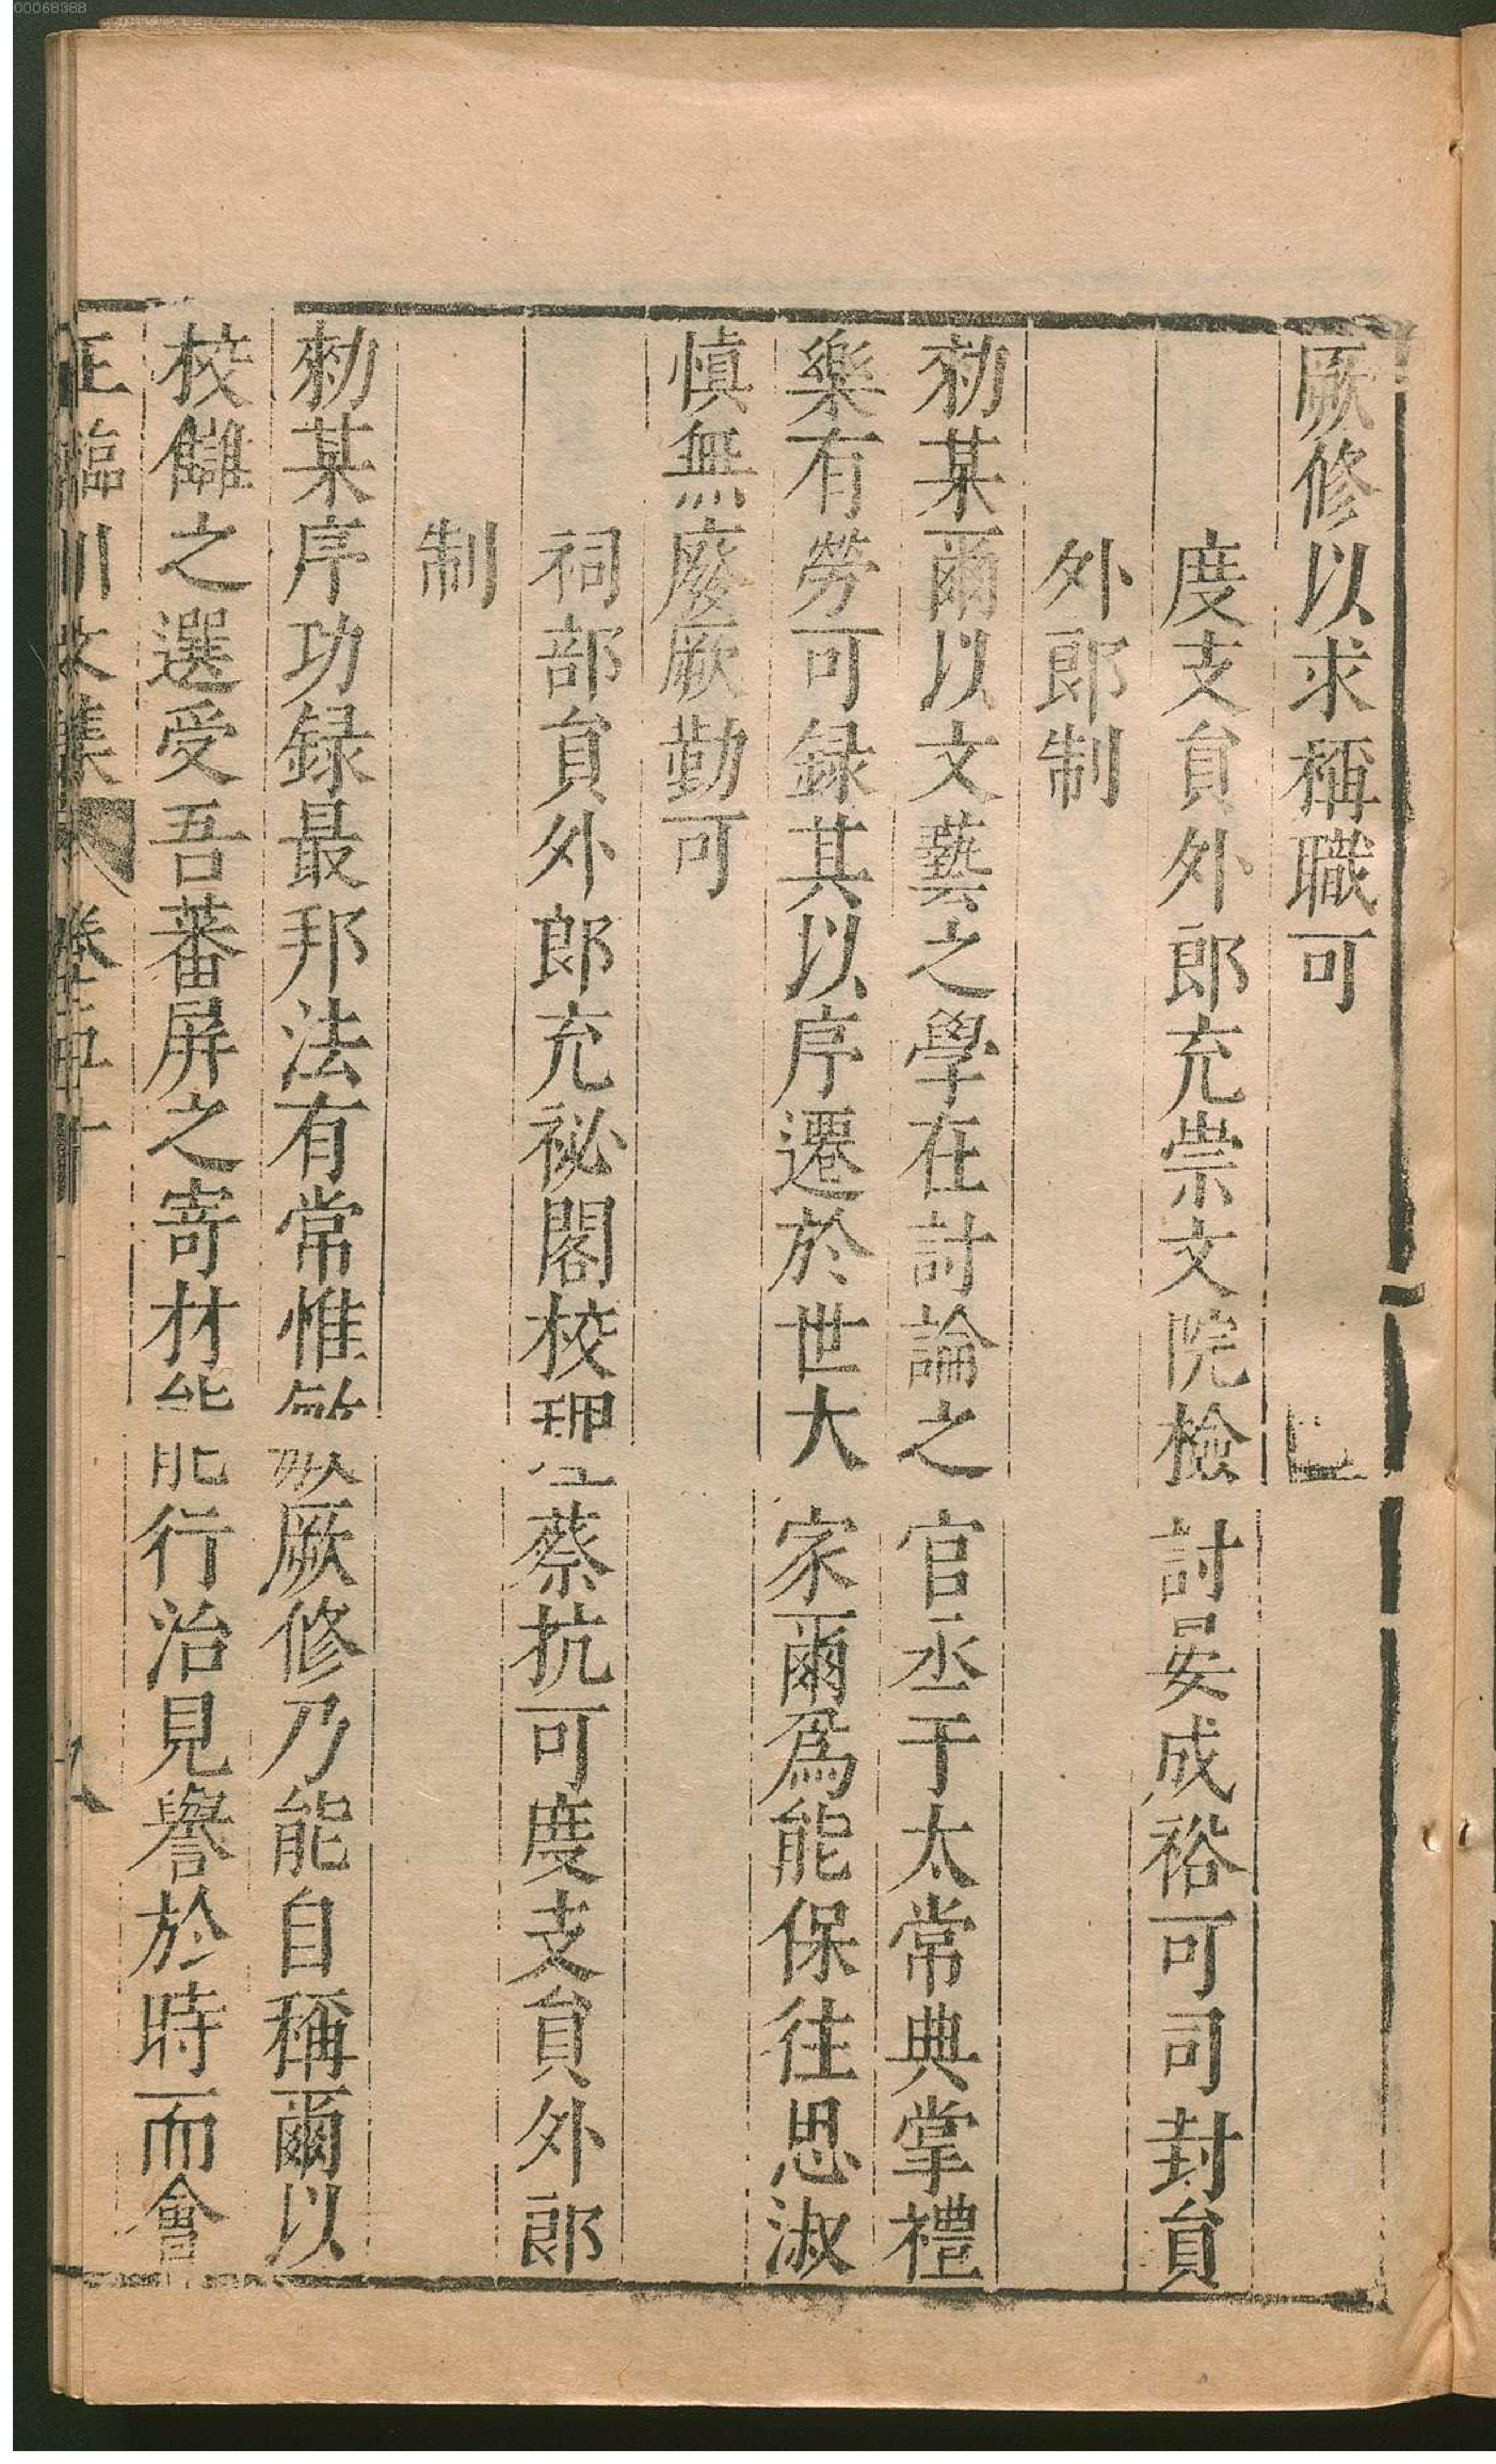 厥修以求稱職可
度支貟外郎充崇文院檢討晏成裕可司封貟
外郎制
勑某爾以文藝之學在討論之官丞于太常典掌禮
樂有勞可録其以序遷於世大家爾爲能保往思淑
慎無廢厥勤可
祠部貟外郎充祕閣校理蔡抗可度支貟外郎
制
勑某序功録最邦法有常惟敏厥修乃能自稱爾以
校讎之選受吾蕃屏之寄材能行治見譽於時而會
王臨川文集 卷五十
00068388